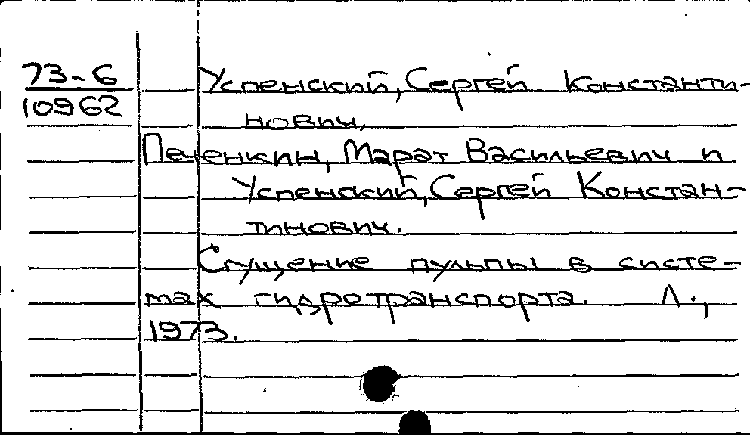 73-6
10962
Успенский, Сергей Константи-
нович,
Печенкин, Марат Васильевич и
Успенский, Сергей Констан-
тинович.
Сгущение пульпы в систе-
мах гидротранспорта. Л.,
1973.